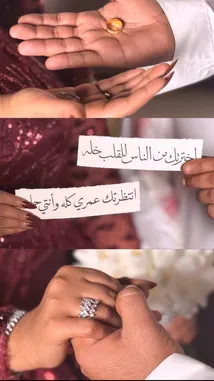 اخترتك من الناس للقلب خله
انتظرتك عمري كله وأنتي